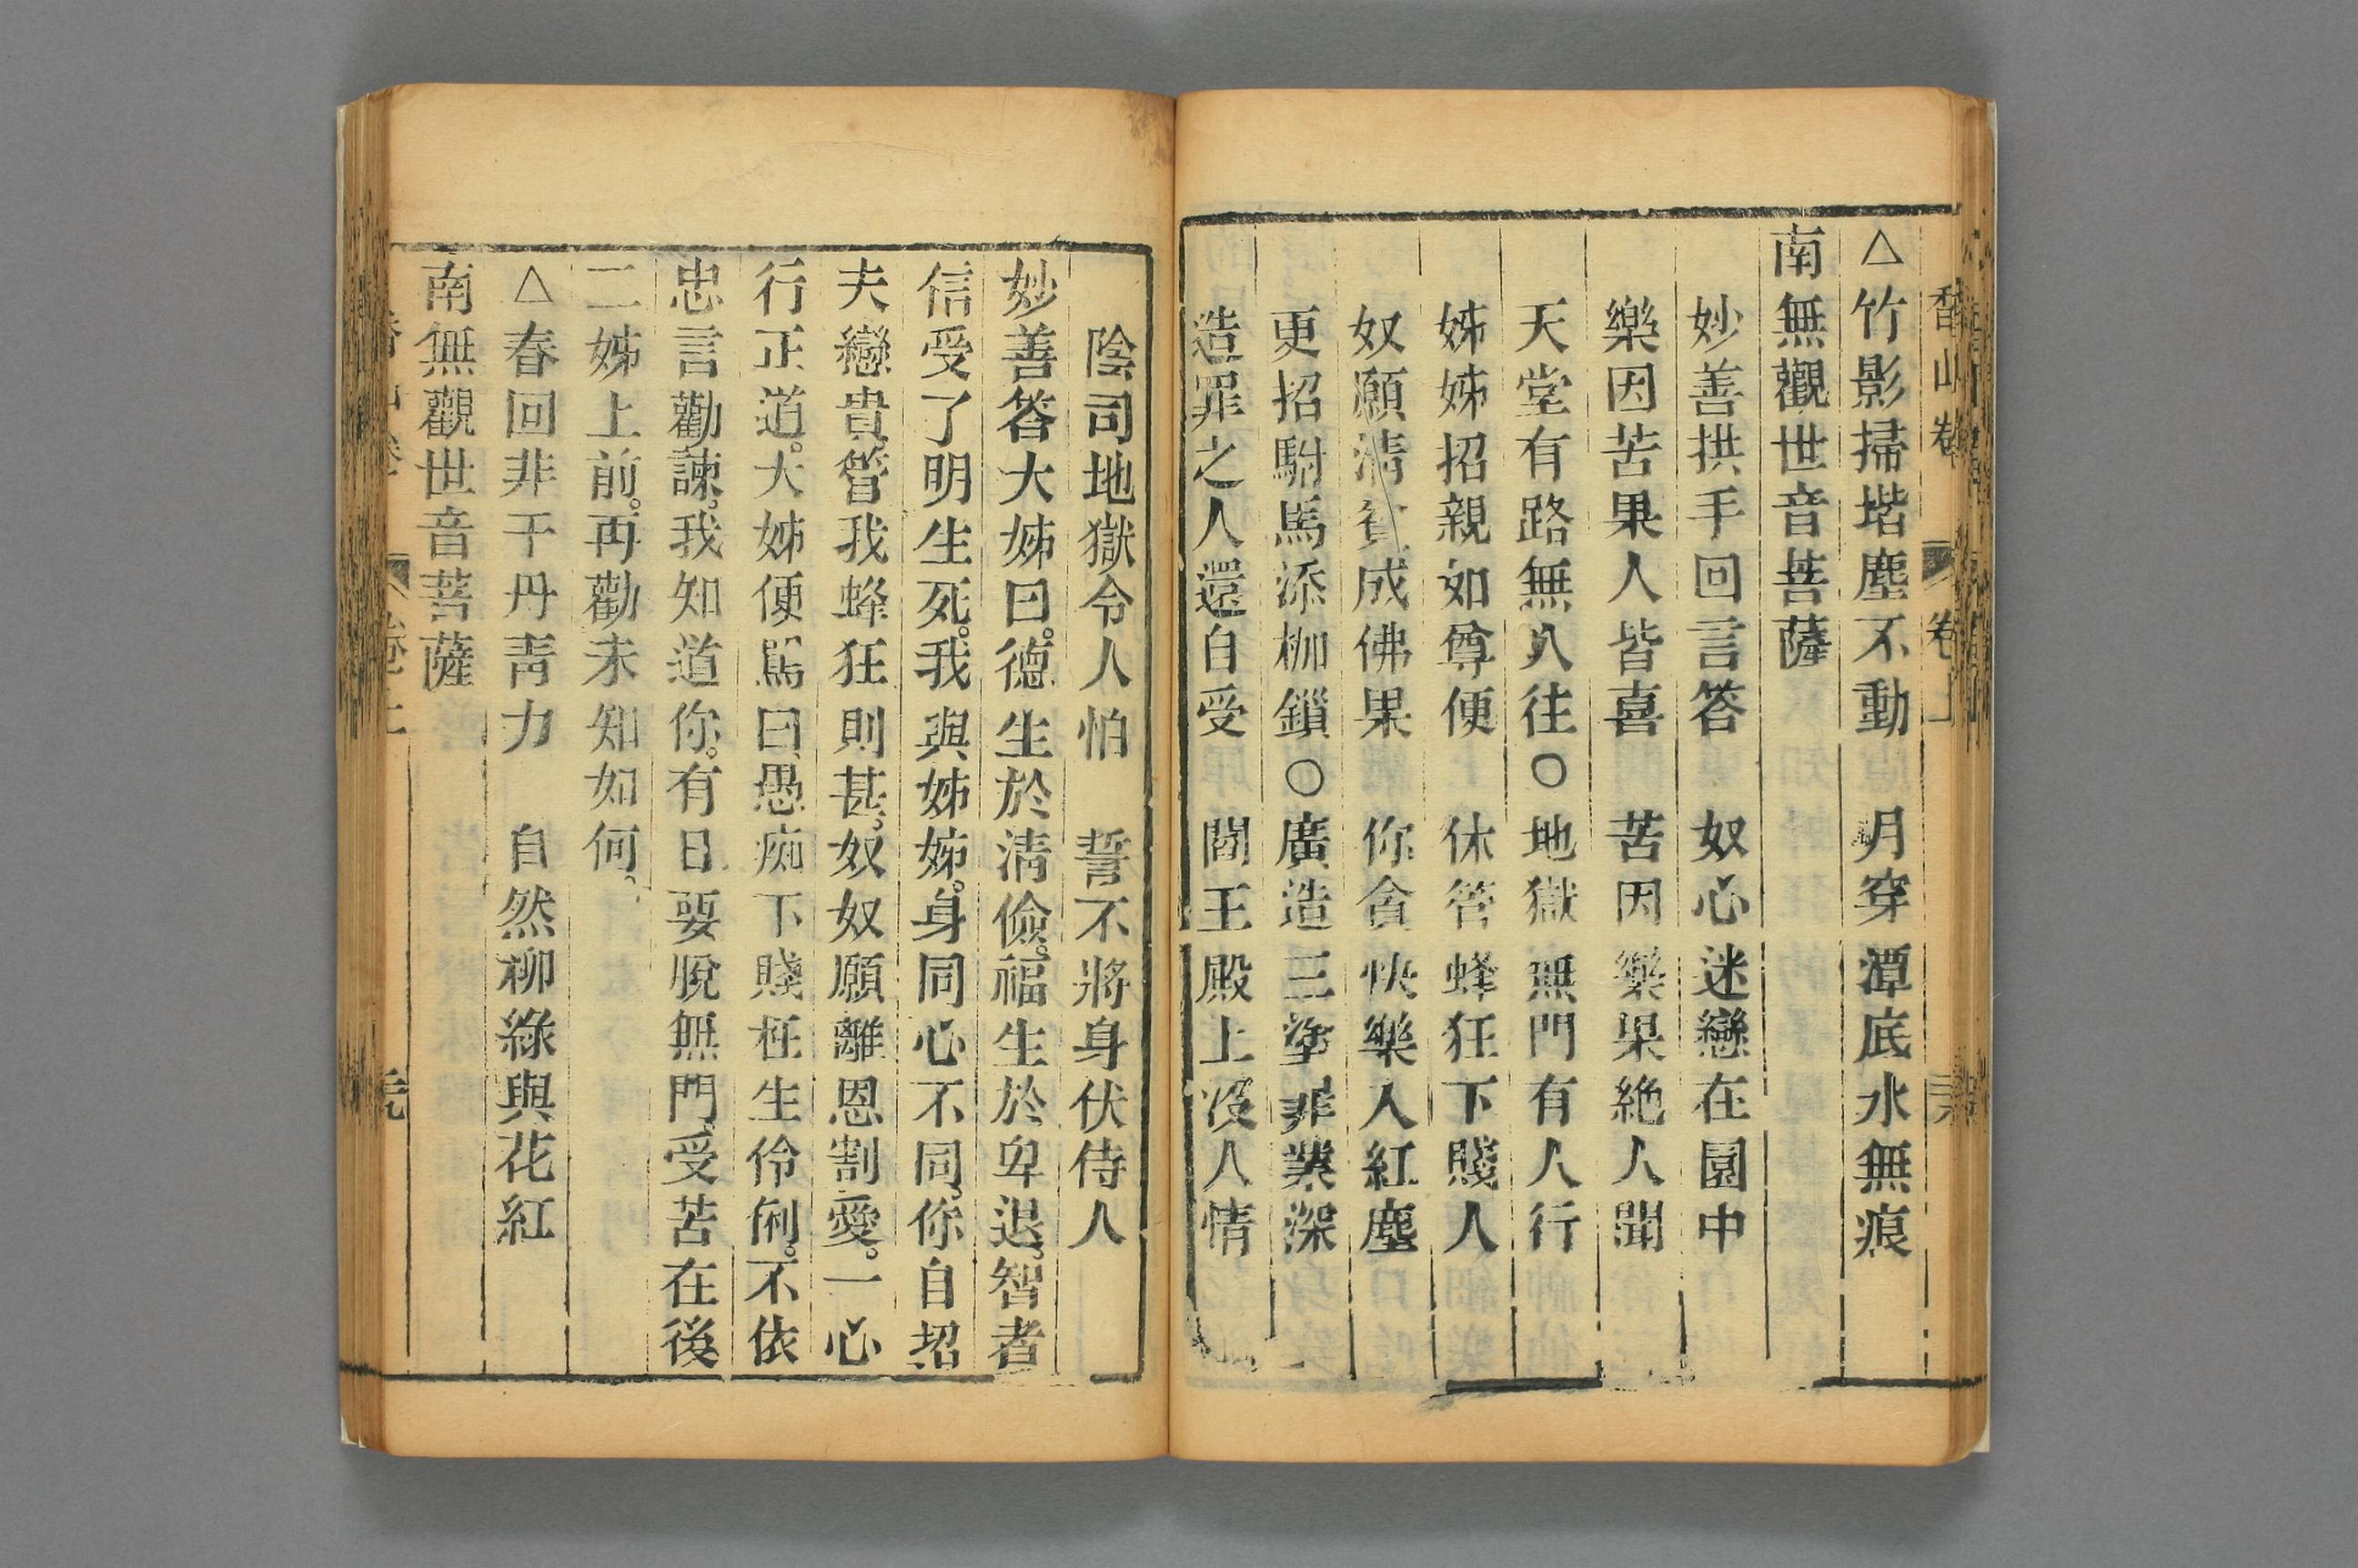 香山卷 卷上
△竹影掃堦塵不動 月穿潭底水無痕
南無觀世音菩薩
妙善拱手回言答 奴心迷戀在園中
樂因苦果人皆喜 苦因樂果絶人聞
天堂有路無人往○地獄無門有人行
姊姊招親如尊便 休管蜂狂下賤人
奴願清貧成佛果 你貪快樂入紅塵
更招駙馬添枷鎖○廣造三塗罪業深
造罪之人還自受 閻王殿上沒人情
陰司地獄令人怕 誓不將身伏侍人
妙善答大姊曰。德生於清儉。福生於卑退。智者
信受了明生死。我與姊姊。身同心不同。你自招
夫戀貴。管我蜂狂則甚。奴奴願離恩割愛。一心
行正道。大姊便罵曰。愚痴下賤。枉生伶俐。不依
忠言勸諫。我知道你。有日要脫無門。受苦在後
二姊上前。再勸未知如何。
△春回非干丹青力 自然柳綠與花紅
南無觀世音菩薩
香山卷 卷上